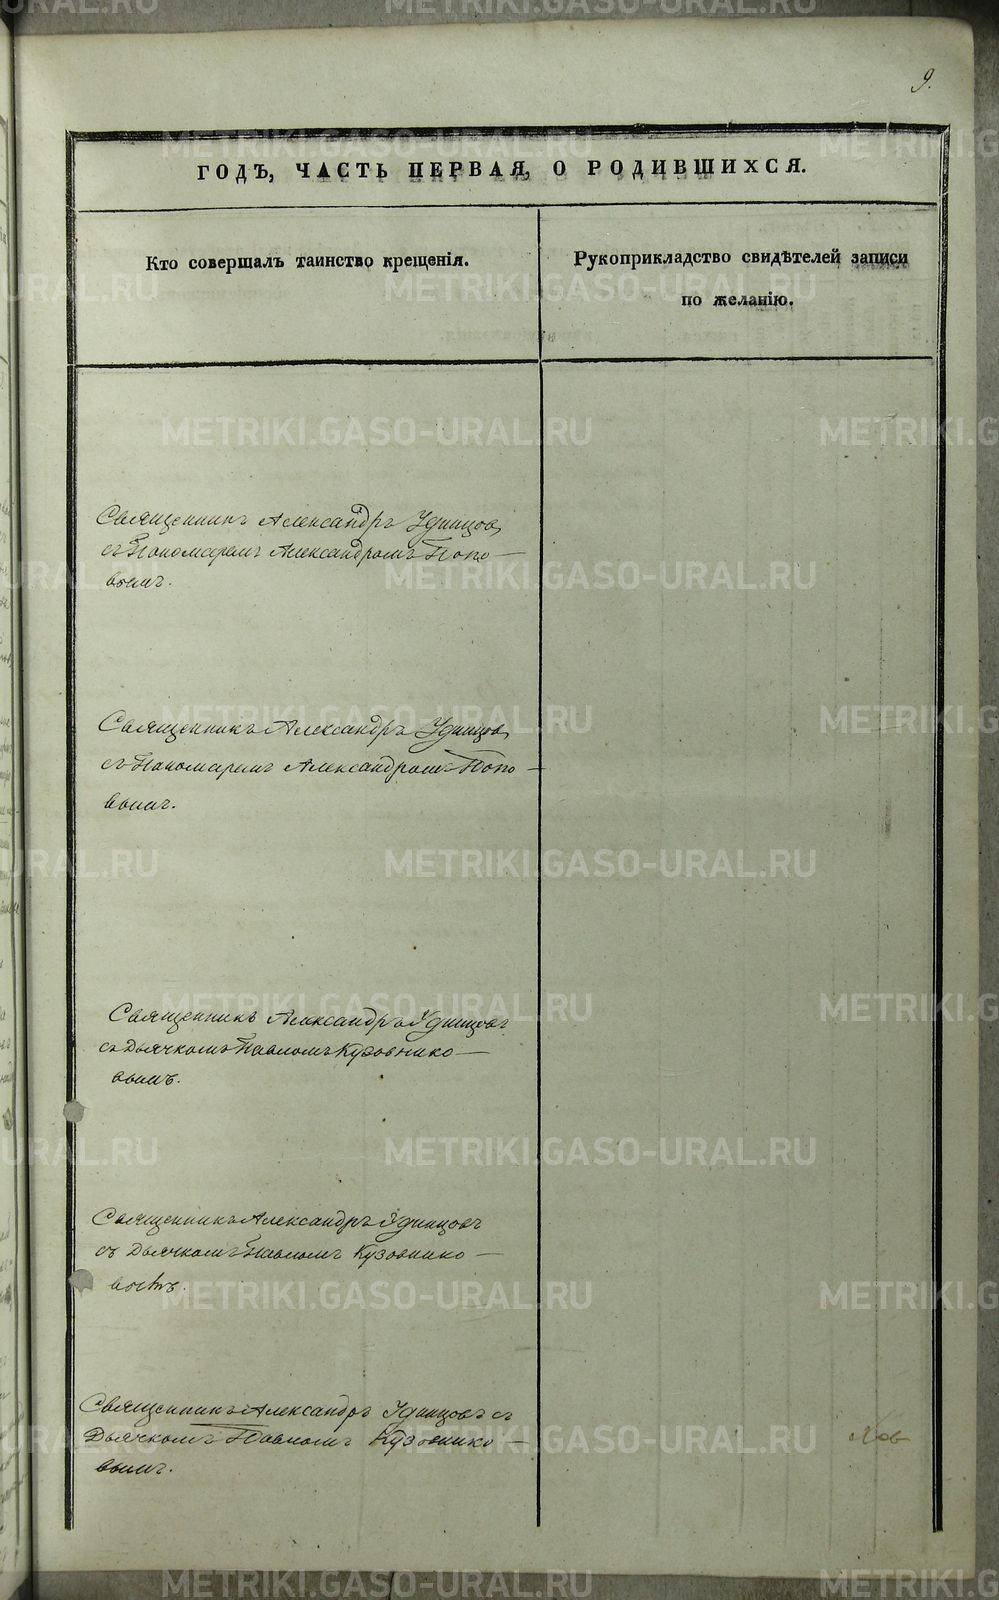 9.
ГОДЪ, ЧАСТЬ ПЕРВАЯ, О РОДИВШИХСЯ.
Кто совершалъ таинство крещенія.
Рукоприкладство свидѣтелей записи
по желанію.
Священникъ Александръ Удинцов,
съ Пономаремъ Александромъ Попо—
вымъ.
Священникъ Александръ Удинцов,
съ Пономаремъ Александромъ Попо—
вымъ.
Священникъ Александръ Удинцовъ
съ Дьячкомъ Павломъ Кузовнико—
вымъ.
Священникъ Александръ Удинцовъ
съ Дьячкомъ Павломъ Кузовнико—
Священникъ Александръ Удинцовъ съ
Дьячкомъ Павломъ Кузовнико—
вымъ.
METRIKI.GASO-URAL.RU